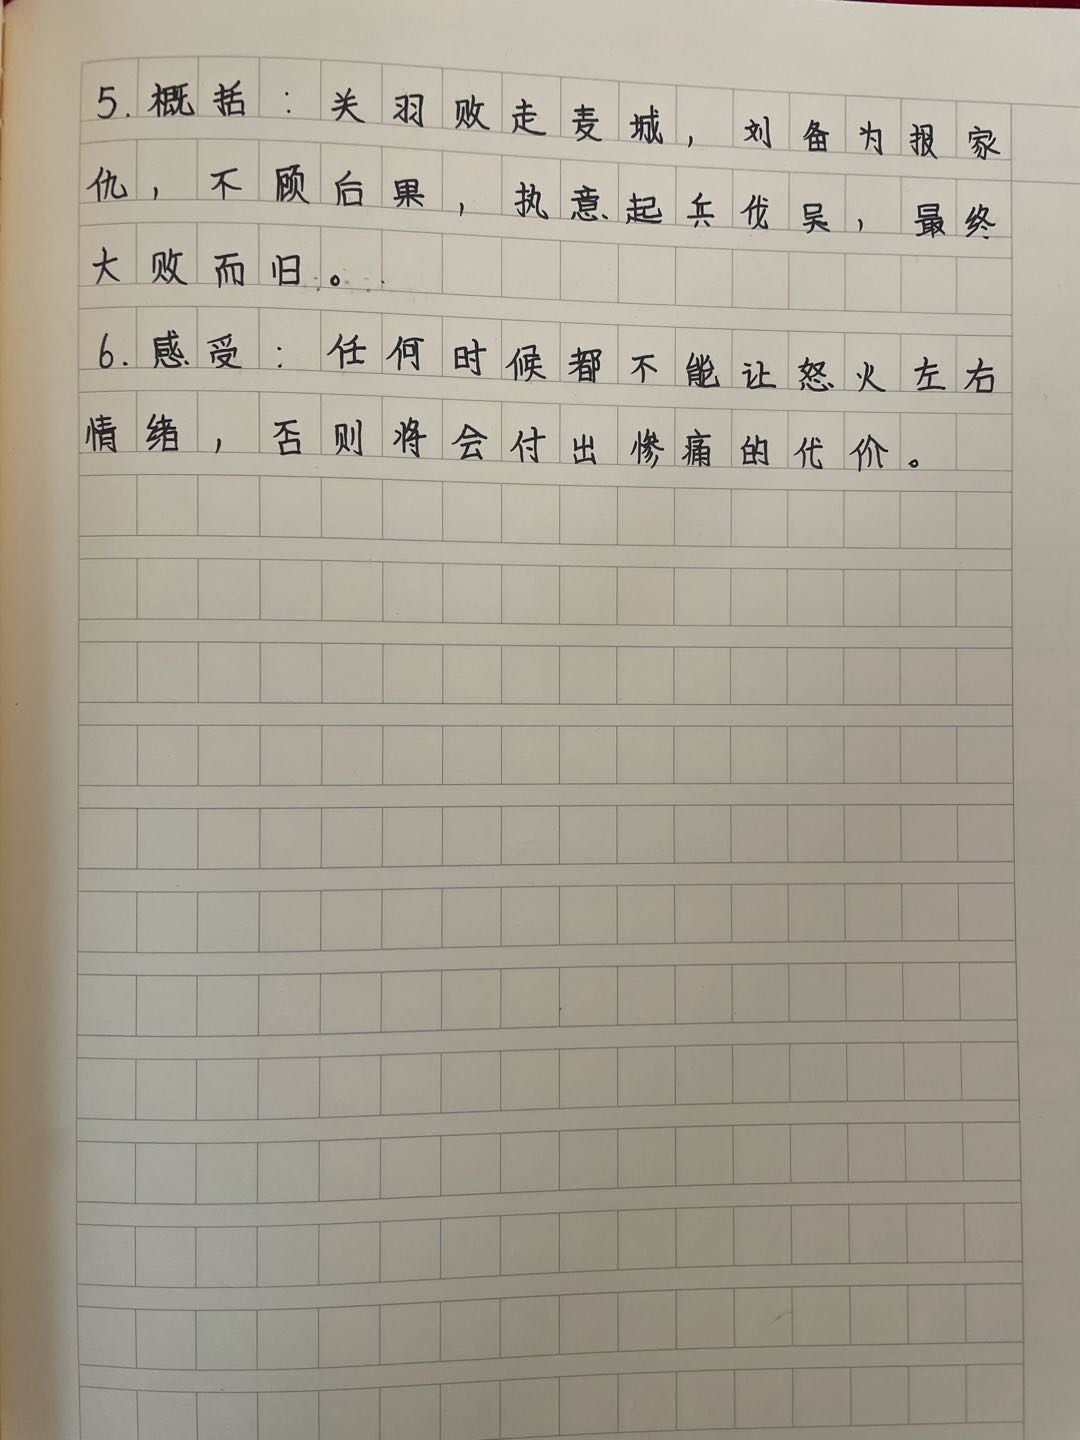 5.概括：关羽败走麦城，刘备为报家
仇，不顾后果，执意起兵伐吴，最终
大败而归。
6.感受：任何时候都不能让怒火左右
情绪，否则将会付出惨痛的代价。